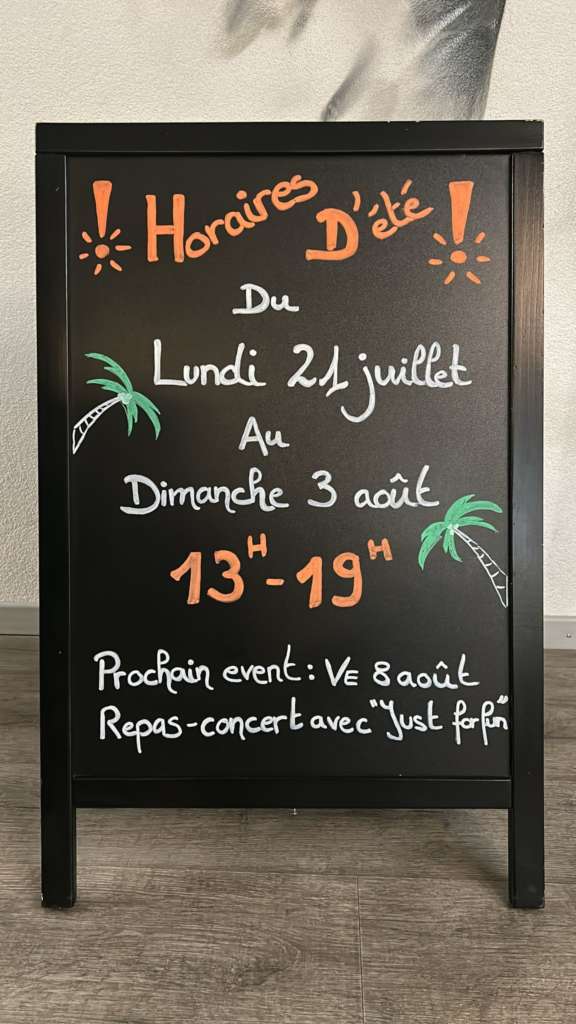 ! Horaires D'été !
Du
Lundi 21 juillet
Au
Dimanche 3 août
13H-19H
Prochain event : VE 8 août
Repas-concert avec "Just for fun"